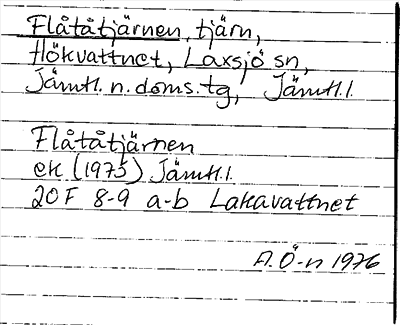 Flåtåtjärnen, tjärn,
Hökvattnet, Laxsjö sn,
Jämtl. n. doms. tg, Jämtl. l.
Flåtåtjärnen
ek (1975) Jämtl. l.
20F 8-9 a-b Lakavattnet
A. Ö-n 1976